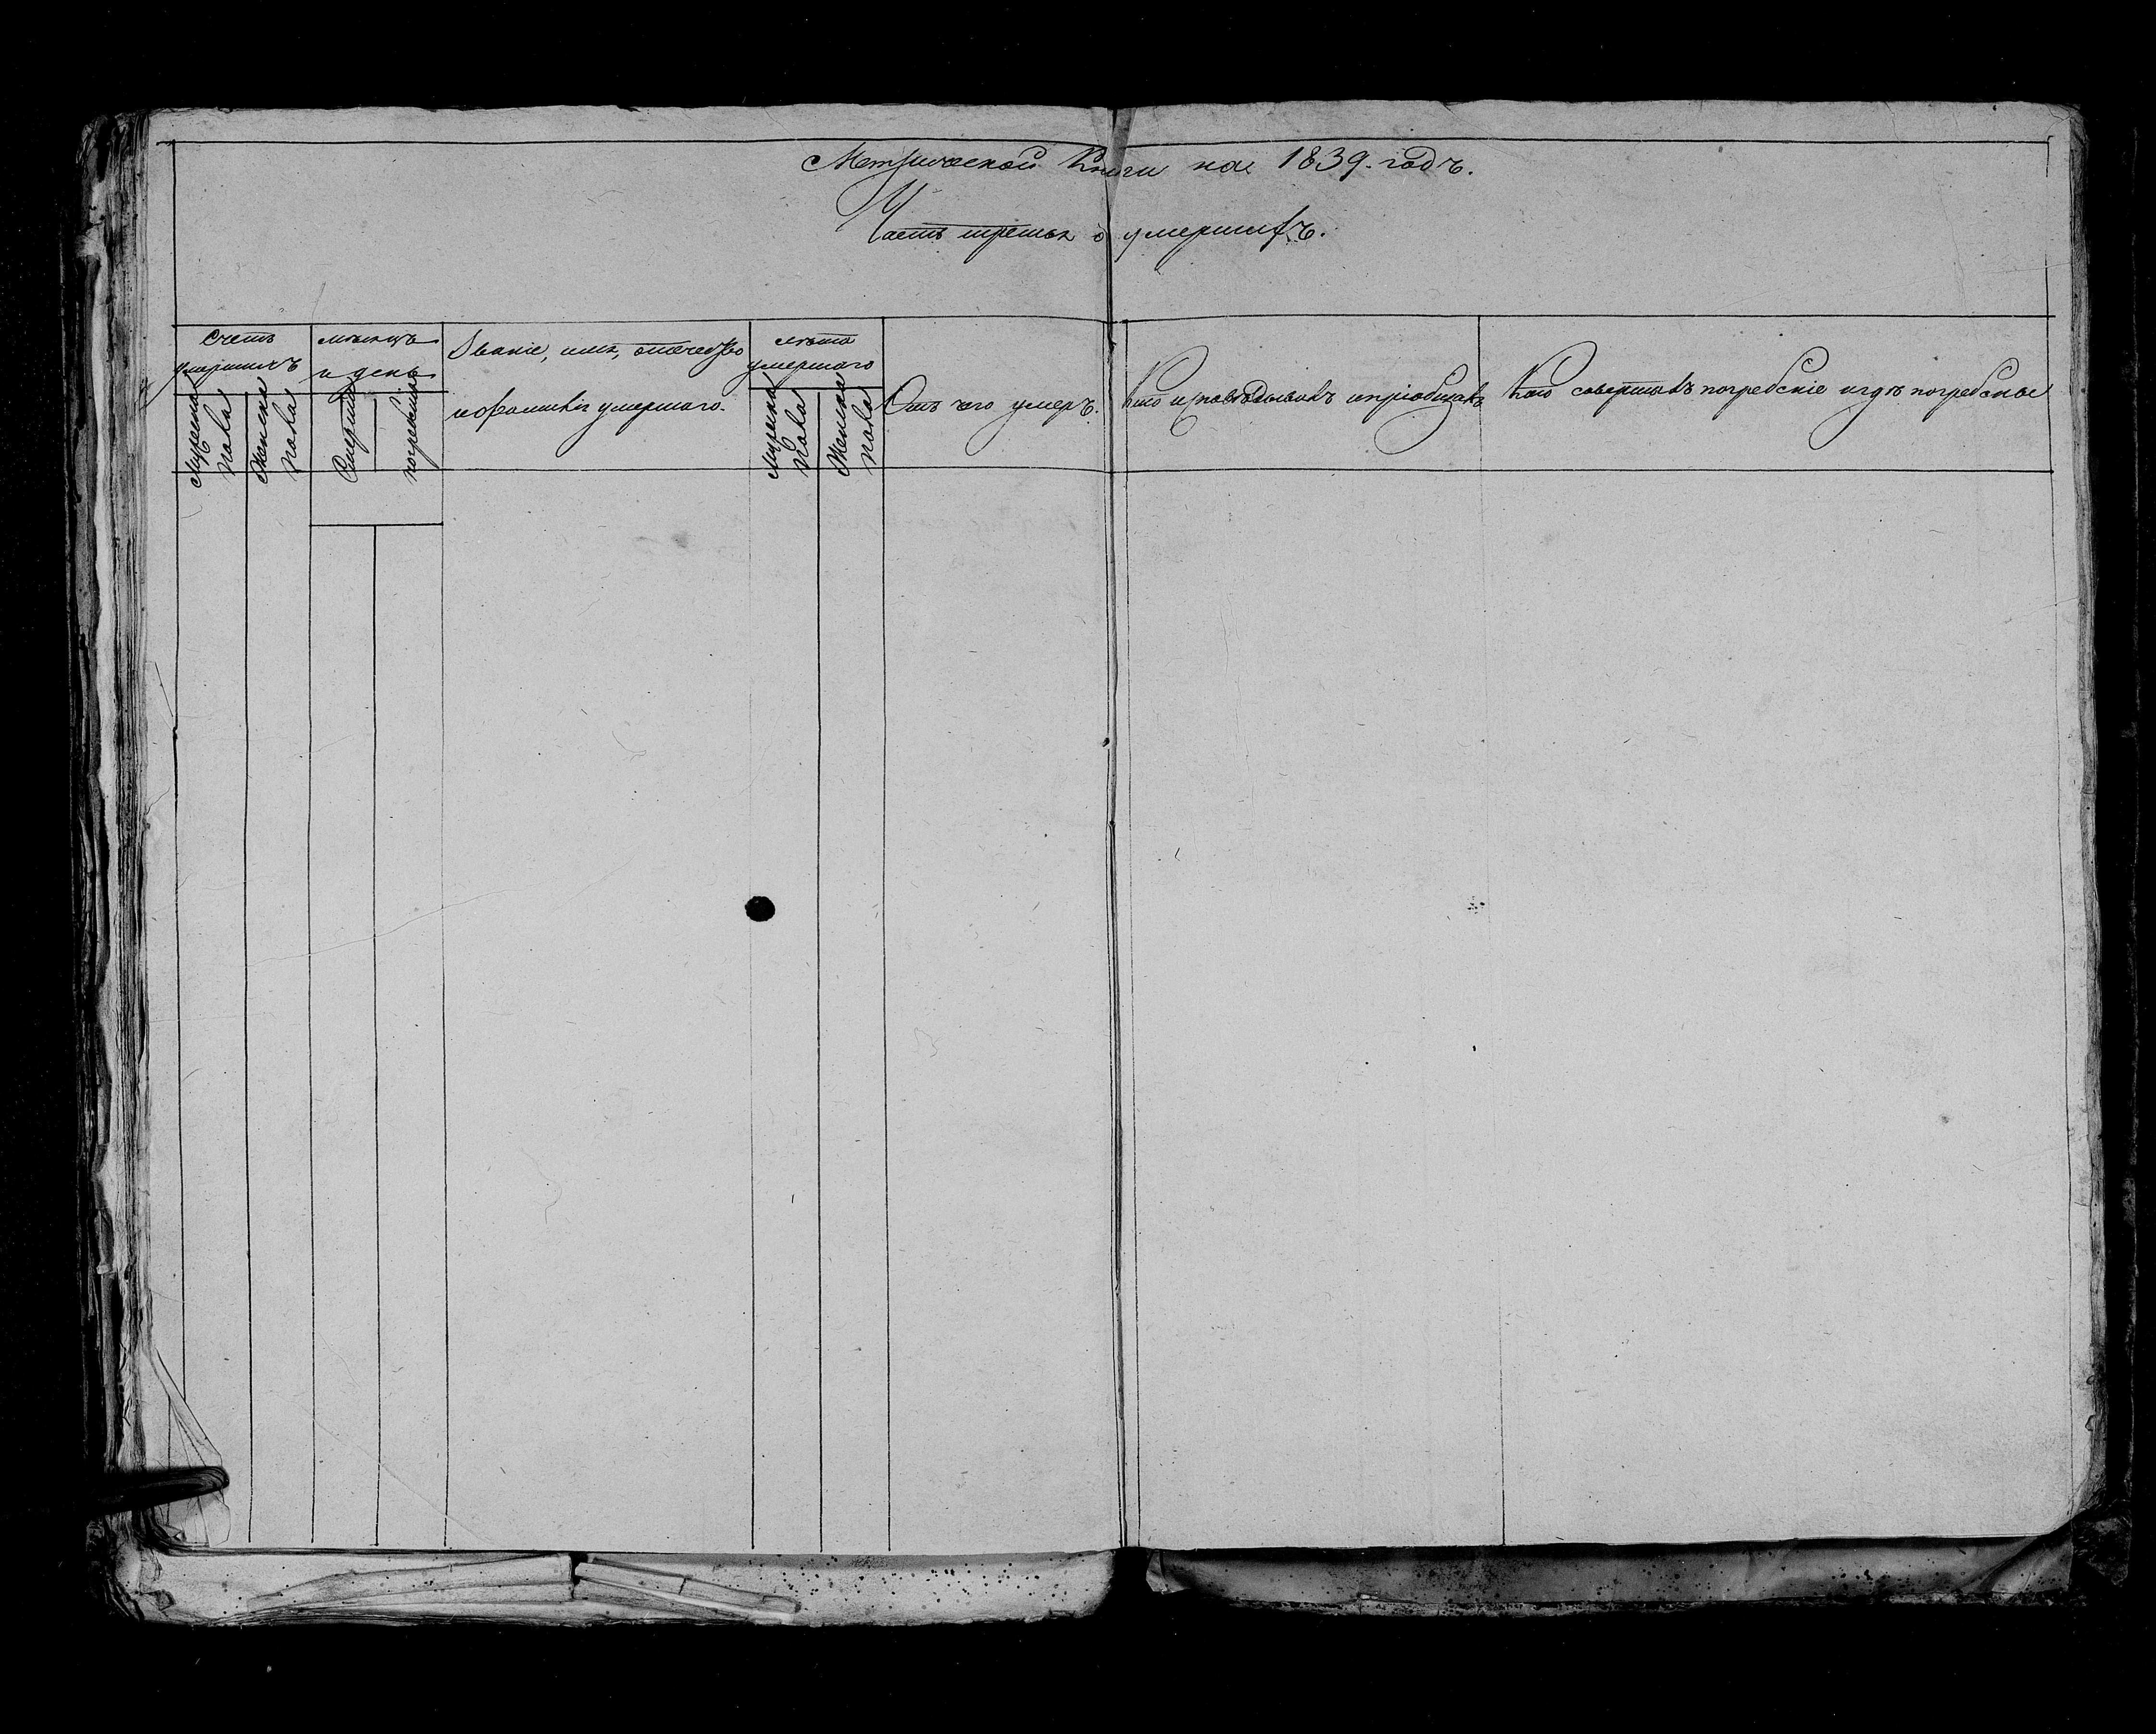 Метрической Книги на 1839. годъ.
Часть третья о умершихъ.
Счетъ
умершихъ
Мужеска
пола
Женска
пола
мѣсяцъ
и день
Смерти
погребенія
Званіе, имя, отечество
и фамилія умершаго.
лѣта
умершаго
Мужеска
пола
Женска
пола
Отъ чего умеръ.
Кто исповѣдывалъ и пріобщалъ
Кто совершалъ погребеніе и гдѣ погребены